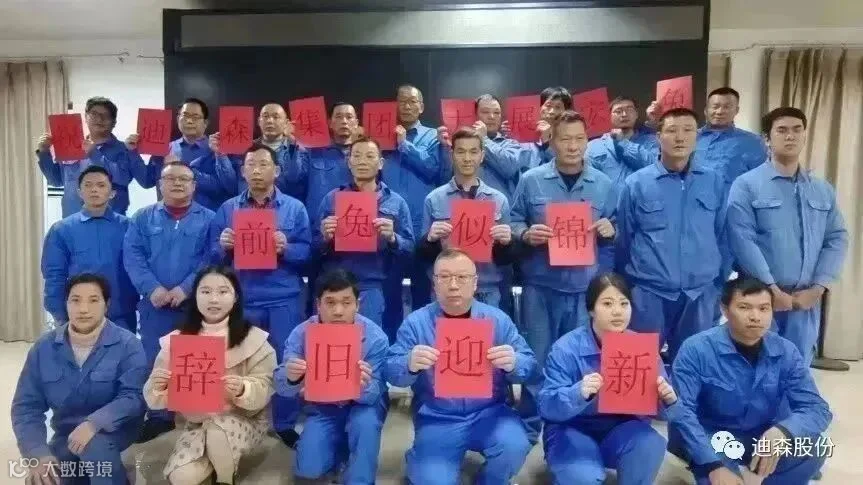 祝迪森集团大展宏兔
前兔似锦
辞旧迎新
迪森股份
大数跨境